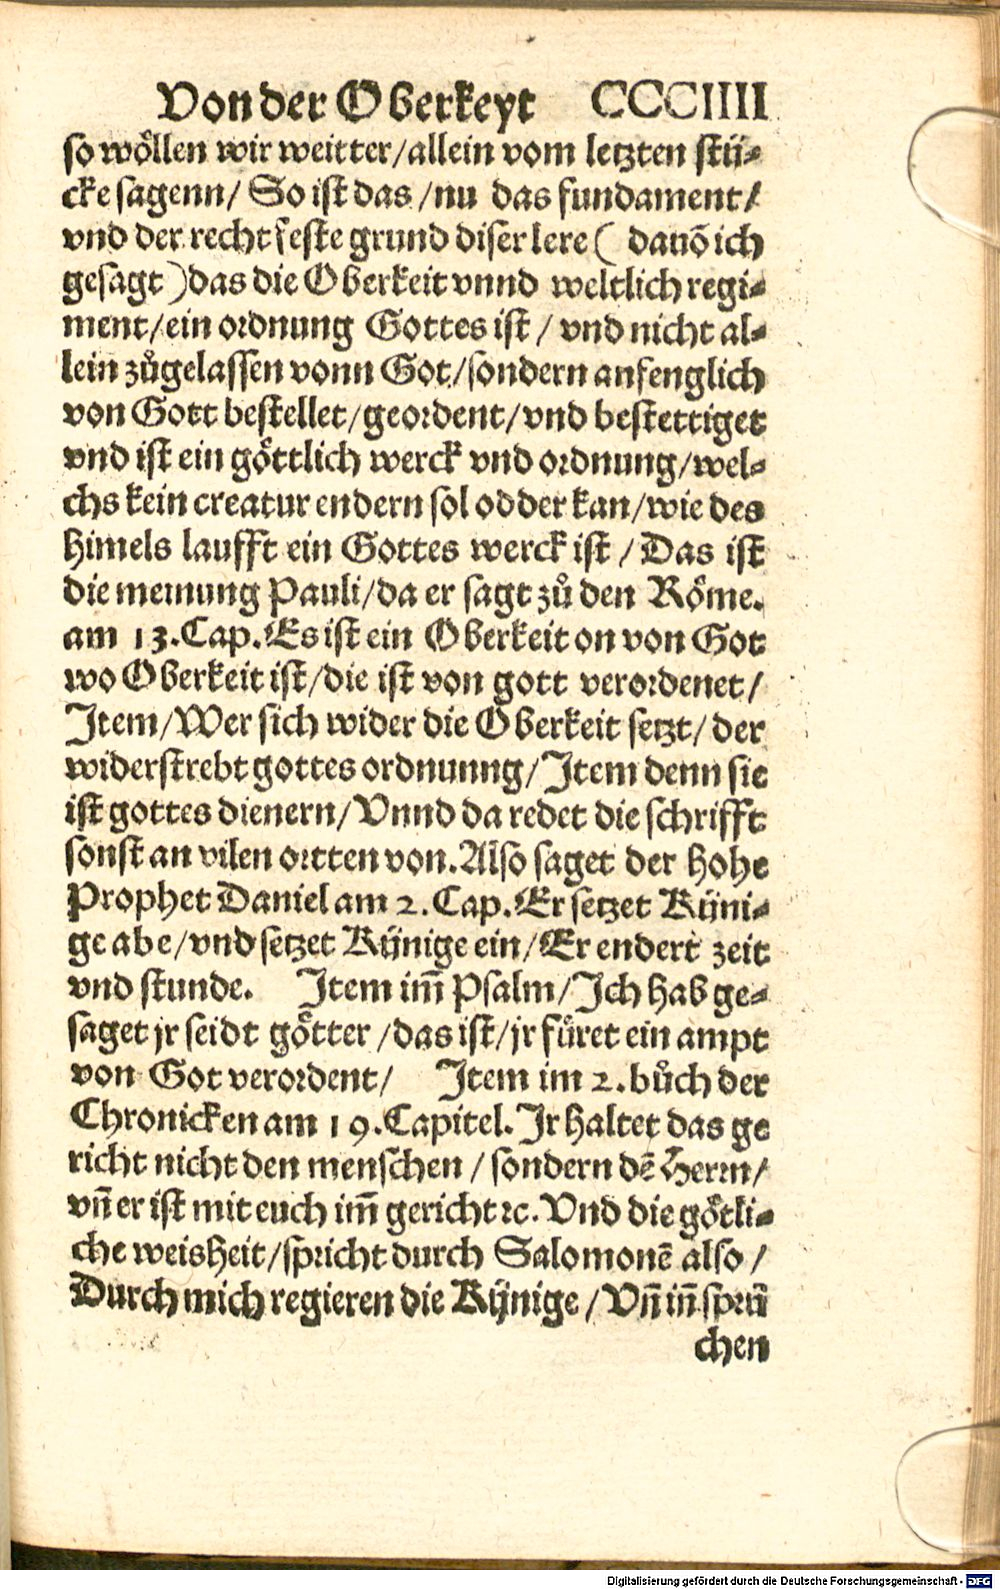 Von der Oberkeyt CCCIIII
so wöllen wir weitter/allein vom letzten stü⸗
cke sagenn/ So ist das /nu das fundament/
vnd der recht feste grund diser lere ( dauō ich
gesagt )das die Oberkeit vnnd weltlich regi⸗
ment/ein ordnung Gottes ist / vnd nicht al⸗
lein zůgelassen vonn Got/sondern anfenglich
von Gott bestellet/geordent/vnd bestettiget
vnd ist ein göttlich werck vnd ordnung/wel⸗
chs kein creatur endern sol odder kan/wie des
himels laufft ein Gottes werck ist / Das ist
die meinung Pauli/da er sagt zů den Röme.
am 13.Cap.Es ist ein Oberkeit on von Got
wo Oberkeit ist/die ist von gott verordenet/
Item/Wer sich wider die Oberkeit setzt/ der
widerstrebt gottes ordnunng/Item denn sie
ist gottes dienern/Vnnd da redet die schrifft
sonst an vilen ortten von.Also saget der hohe
Prophet Daniel am 2. Cap.Er setzet Küni⸗
ge abe/vnd setzet Künige ein/Er endert zeit
vnd stunde. Item im̄ Psalm/Ich hab ge⸗
saget jr seidt götter /das ist/jr füret ein ampt
von Got verordent/ Item im 2.bůch der
Chronicken am 19.Capitel.Ir haltet das ge
richt nicht den menschen / sondern dē Herrn/
vn̄ er ist mit euch im̄ gericht ꝛc.Vnd die götli⸗
che weisheit/spricht durch Salomonē also /
Durch mich regieren die Künige /Vn̄ in̄ sprü
chen
Digitalisierung gefördert durch die Deutsche Forschungsgemeinschaft - DFG